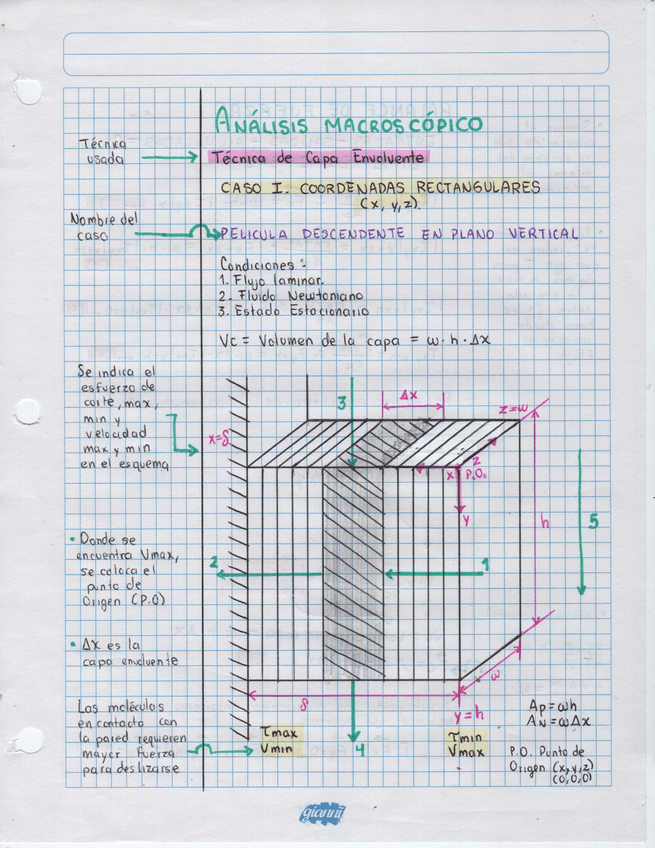 ANÁLISIS MACROSCÓPICO
Técnica
usada
Técnica de Capa Envolvente
CASO I. COORDENADAS RECTANGULARES
(x, y, z).
Nombre del
caso
PELICULA DESCENDENTE EN PLANO VERTICAL
Condiciones:
1. Flujo laminar.
2. Fluido Newtoniano
3. Estado Estacionario
Vc = Volumen de la capa = ω · h · Δx
Se indica el
esfuerzo de
corte, max,
min y
velocidad
max y min
en el esquema
3
Δx
z=ω
x=δ
z
x
P.O.
y
h
5
• Donde se
encuentra Vmax,
se coloca el
punto de
Origen (P.O)
2
1
• Δx es la
capa envolvente
δ
ω
y=h
Ap=ωh
AN=ωΔx
Las moléculas
en contacto con
la pared requieren
mayor fuerza
para deslizarse
τmax
Vmin
4
τmin
Vmax
P.O. Punto de
Origen (x,y,z)
(0,0,0)
gianni